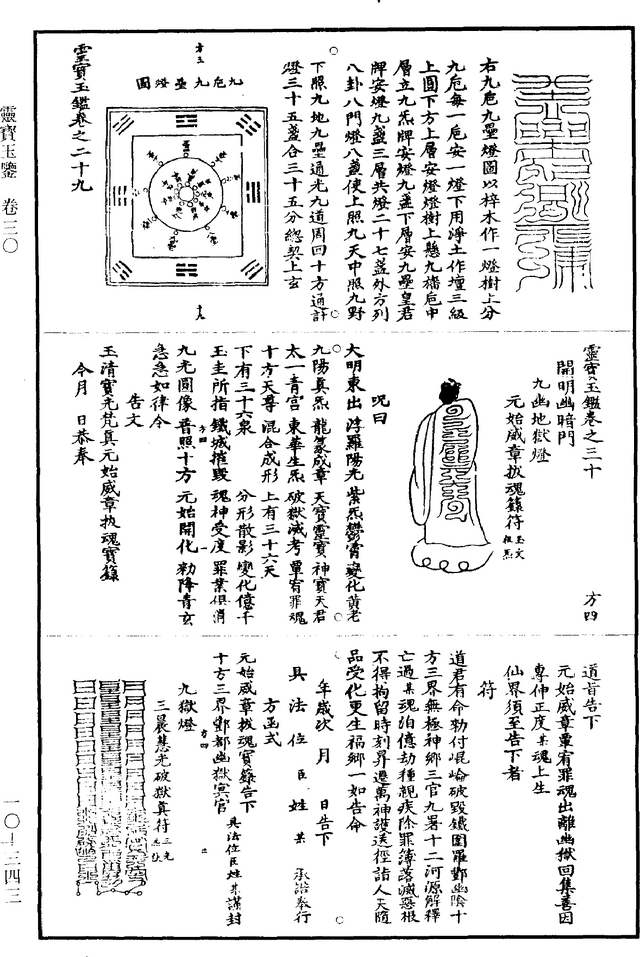 靈寶玉鑒 卷三〇
一〇—三四三
右九巵九壘燈圖以梓木作一燈樹上分
九巵每一巵安一燈下用淨土作壇三級
上圓下方上層安燈燈樹上懸九幡巵中
層立九炁牌安燈九盞下層安九壘皇君
牌安燈九盞三層共燈二十七盞外方列
八卦八門燈八盞使上照九天中照九野
下照九地九壘過光九道周回十方通計
燈三十五盞合三十五分總契上玄
九巵九壘燈圖
靈寶玉鑑卷之二十九
靈寶玉鑑卷之三十
方四
開明幽暗門
九幽地獄燈
元始威章拔魂籙符
呪曰
大明東出 浮羅陽光 紫炁鬱霄 變化黃老
九陽真炁 龍篆成章 天寶靈寶 神寶天君
太一青宮 東華生炁 破獄滅考 覃宥罪魂
十方天尊 混合成形 上有三十六天
下有三十六泉 分形散影 變化億千
玉主所指 鐵城摧毀 魂神受度 罪業俱消
九光圓像 普照十方 元始開化 勅降青玄
急急如律令
告文
玉清寶光梵真元始威章拔魂寶籙
今月 日恭奉
道旨告下
元始威章覃宥罪魂出離幽獄回集善因
專伸正度某魂上生
仙界須至告下者
符
道君有命勅付崐崘破毀鐵圍羅酆幽陰十
方三界無極神鄉三官九署十二河源解釋
亡過某魂洎億劫種親疾除罪簿落滅惡根
不得拘留時刻昇遷萬神護送徑詣人天隨
品受化更生福鄉一如告命
年歲次 月 日告下
具 法 位 臣 姓 某 承誥奉行
方函式
元始威章拔魂寶籙告下
十方三界酆都幽獄冥官
具法位臣姓某謹封
方四
九獄燈
三晨慧光破獄真符